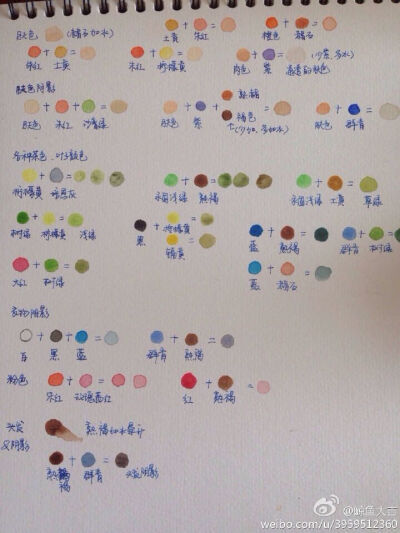 肤色 (赭石加水) 土黄 朱红 橙色 赭石
朱红 土黄 朱红 柠檬黄 肉色 紫 (少紫,多水)
肤色阴影
熟褐
肤色 朱红 沙膏绿 肤色 紫 褐色 肤色 群青
(少加,多加水)
各种菜色、叶子颜色
柠檬黄 暗思灰 永固浅绿 熟褐 永固浅绿 土黄 草绿
树绿 柠檬黄 浅绿 黑 柠檬黄 蓝 熟褐 群青 树绿
镉黄
大红 树绿 蓝 赭石
衣物阴影
白 黑 蓝 群青 熟褐
粉色 朱红 玫瑰茜红 红 熟褐
头发 熟褐加水晕开
&阴影
熟褐 群青 头发阴影
@鲸鱼大吉
weibo.com/u/3959512360